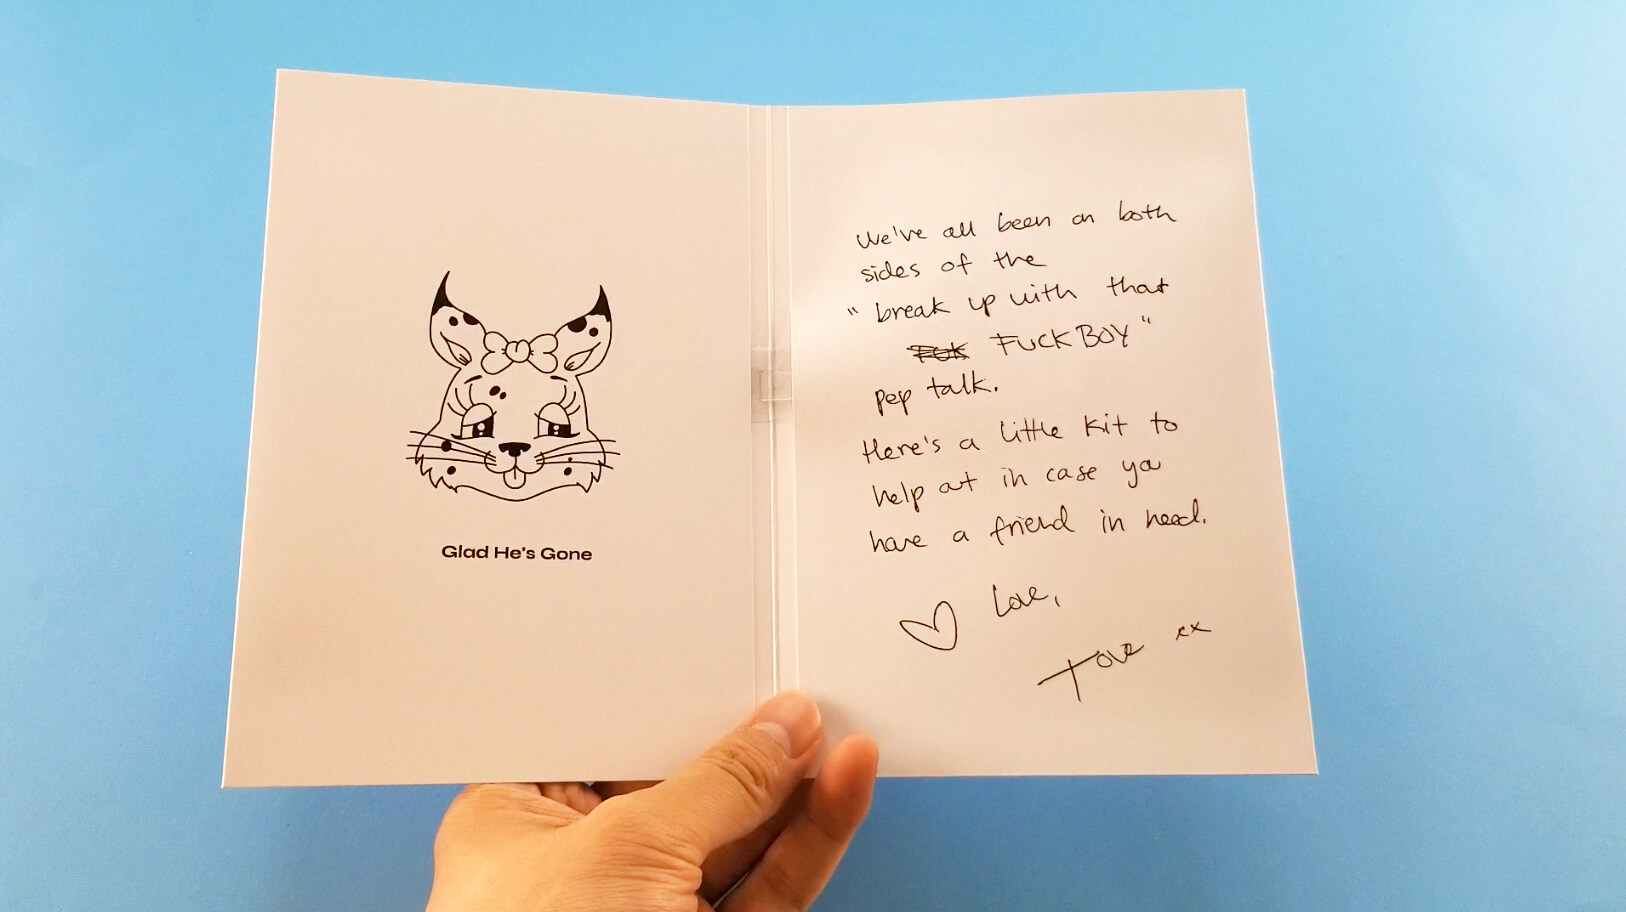 Glad He's Gone
We've all been on both
sides of the
"break up with that
FUCKBOY"
pep talk.
Here's a little kit to
help out in case you
have a friend in need.
Love,
Tove xx